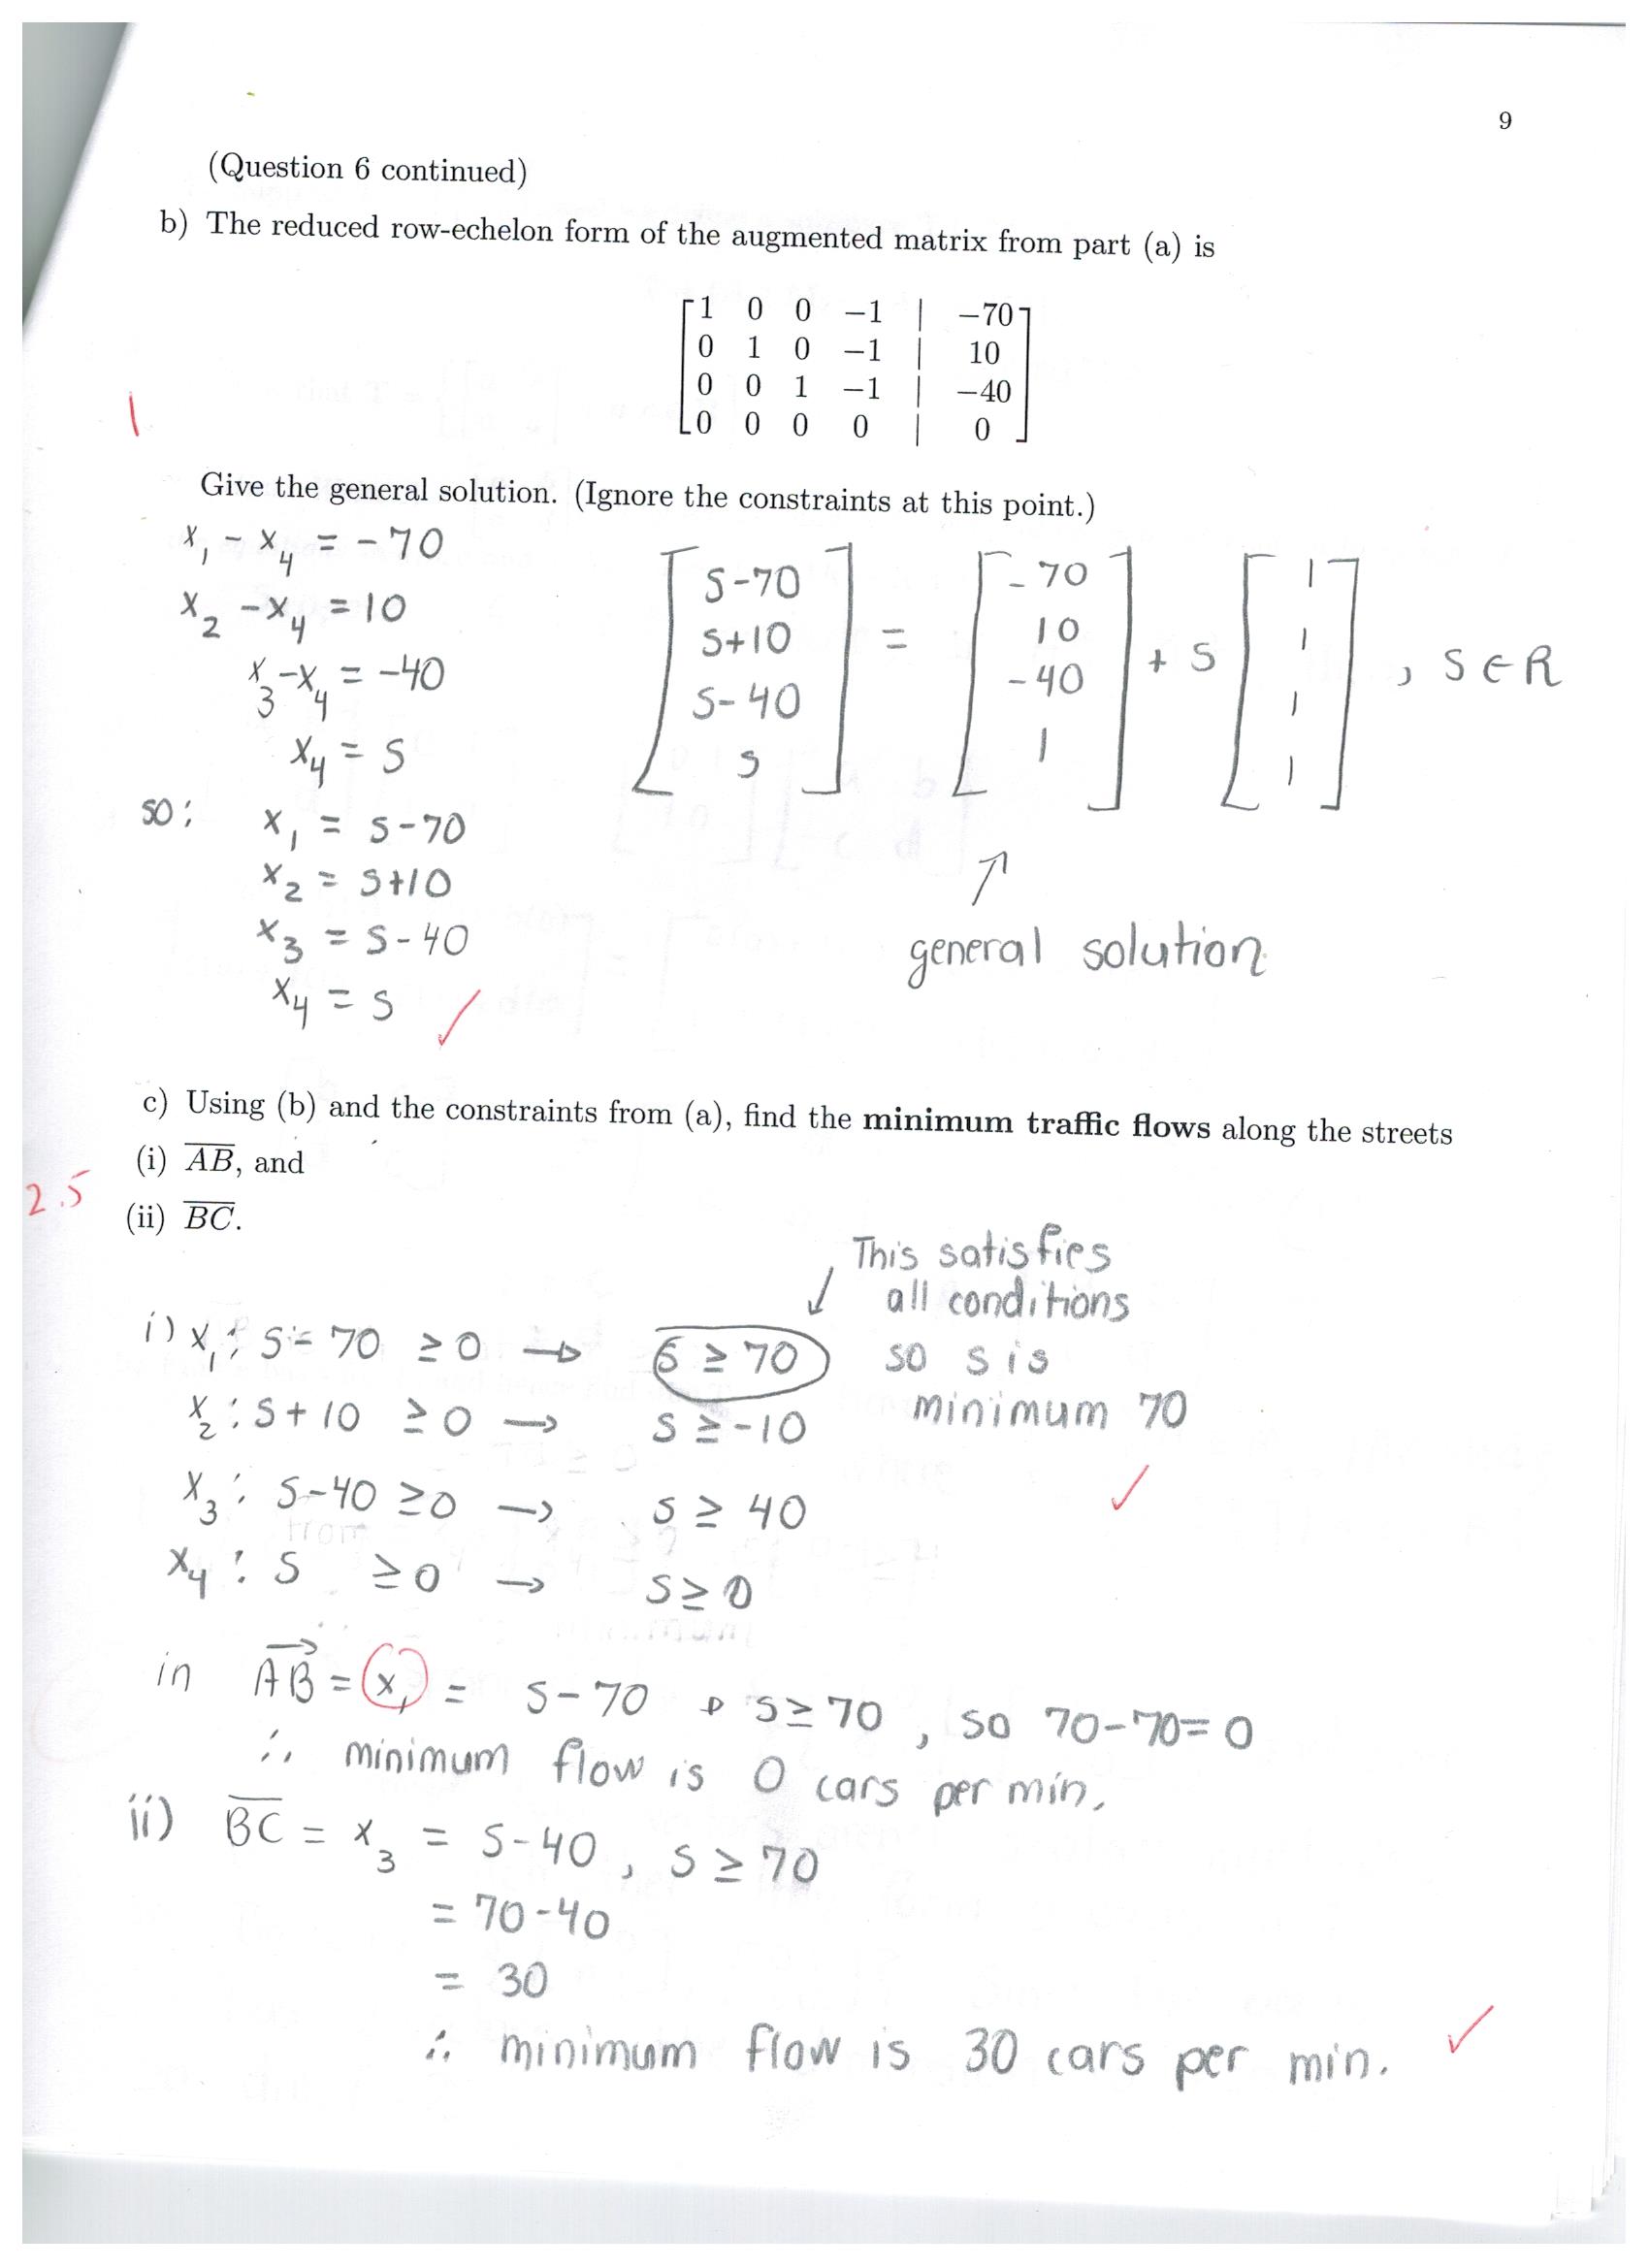 9
(Question 6 continued)
b) The reduced row-echelon form of the augmented matrix from part (a) is
1 0 0 −1 | −70
0 1 0 −1 | 10
0 0 1 −1 | −40
0 0 0 0 | 0
1
Give the general solution. (Ignore the constraints at this point.)
x₁ - x₄ = -70
x₂ - x₄ = 10
x₃ - x₄ = -40
x₄ = S
so: x₁ = S-70
x₂ = S+10
x₃ = S-40
x₄ = S ✓
[S-70 S+10 S-40 S] = [-70 10 -40 1] + S [1 1 1 1] , S ∈ R
↑
general solution
c) Using (b) and the constraints from (a), find the minimum traffic flows along the streets
(i) AB, and
2.5
(ii) BC.
This satisfies
↓ all conditions
so s is
minimum 70
✓
i) x₁: S-70 ≥ 0 → S ≥ 70
x₂: S+10 ≥ 0 → S ≥ -10
x₃: S-40 ≥ 0 → S ≥ 40
x₄: S ≥ 0 → S ≥ 0
in AB = x₁ = S-70 → S ≥ 70, so 70-70=0
∴ minimum flow is 0 cars per min.
ii) BC = x₃ = S-40, S ≥ 70
= 70-40
= 30
∴ minimum flow is 30 cars per min. ✓